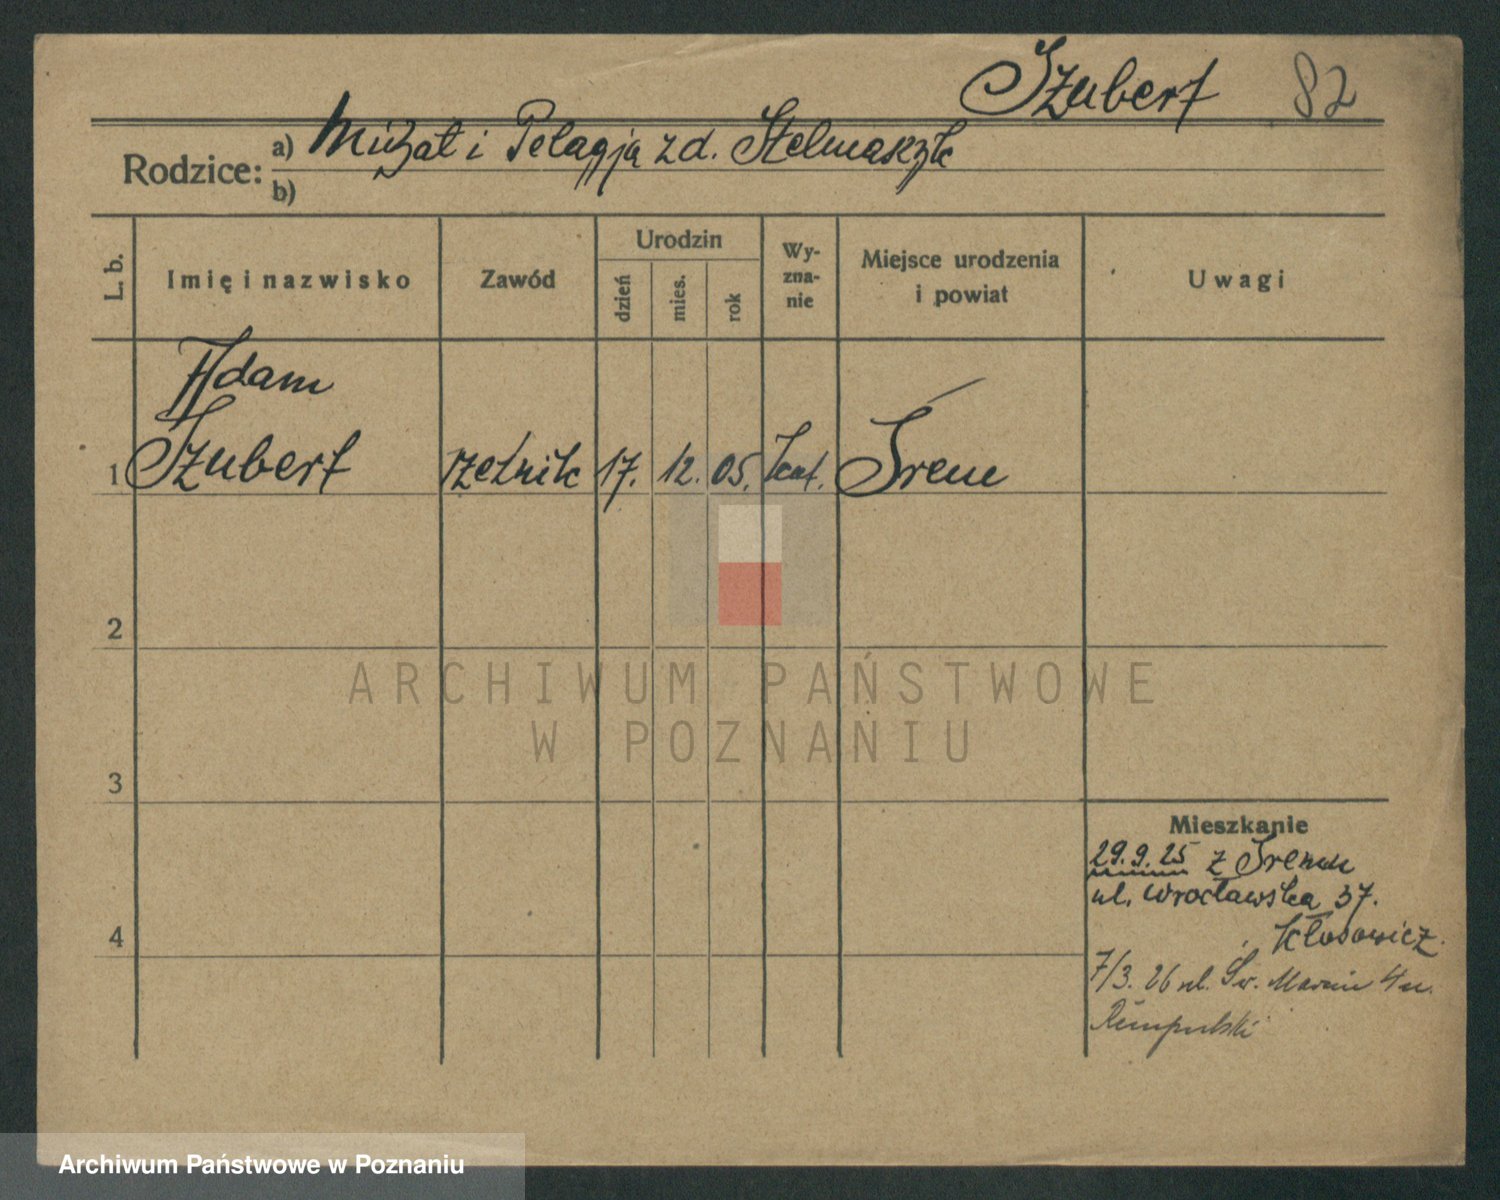 Szubert 82
Rodzice: a) Michał i Pelagja zd. Stelmaszyk
b)
L. b. Imię i nazwisko Zawód Urodzin dzień mies. rok Wyznanie Miejsce urodzenia i powiat Uwagi
Adam
1 Szubert rzeźnik 17. 12. 05. kat. Śrem
2
ARCHIWUM PAŃSTWOWE
W POZNANIU
3
Mieszkanie
29.9.25 z Śremu
ul. Wrocławska 37.
Kłosowicz.
4
7/3. 26 ul. Św. Marcin 4
Archiwum Państwowe w Poznaniu